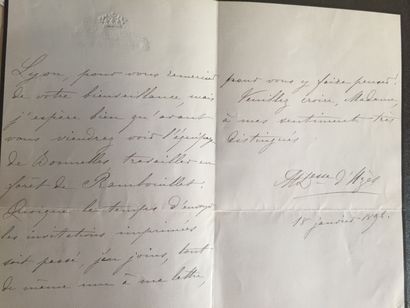 Lyon, pour vous remercier
de votre bienveillance, mais
j'espère bien qu'avant
vous viendrez voir l'équipage
de Bonnelles travailler en
forêt de Rambouillet.
Quoique le temps d'envoyer
les invitations imprimées
soit passé, j'en joins, tout
de même une à ma lettre,
pour vous y faire penser!
Veuillez croire, Madame,
à mes sentiments très
distingués
d'Uzès
18 janvier